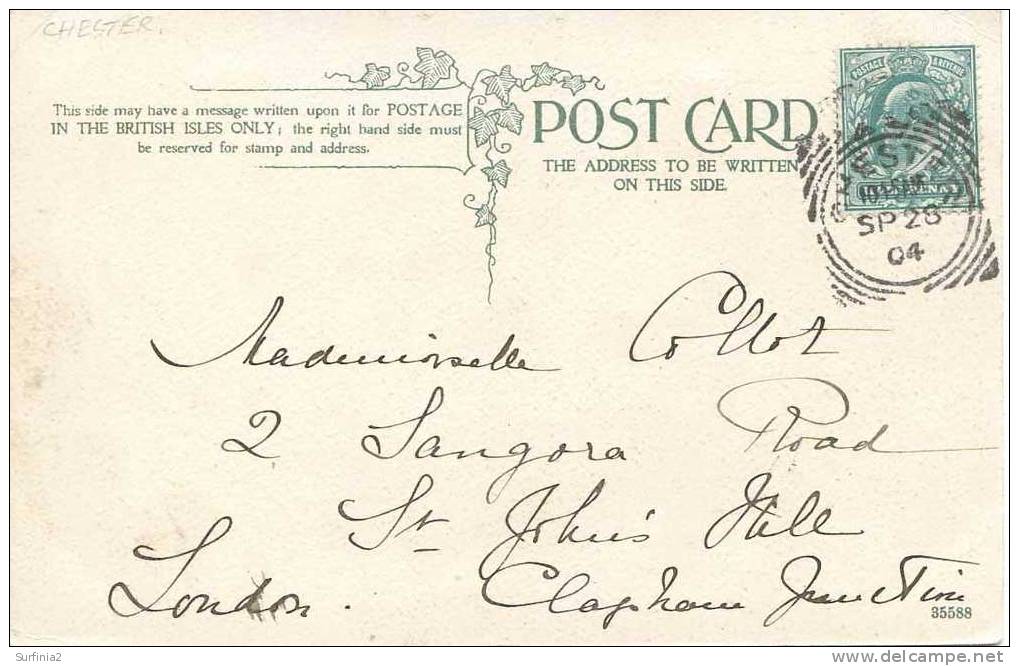 CHESTER.
This side may have a message written upon it for POSTAGE
IN THE BRITISH ISLES ONLY; the right hand side must
be reserved for stamp and address.
POST CARD
THE ADDRESS TO BE WRITTEN
ON THIS SIDE.
POSTAGE & REVENUE
CHESTER
SP 28
04
Mademoiselle Collot
2 Sangora Road
St John's Hill
London. Clapham Junction
35588
Surfinia2
delcampe.net